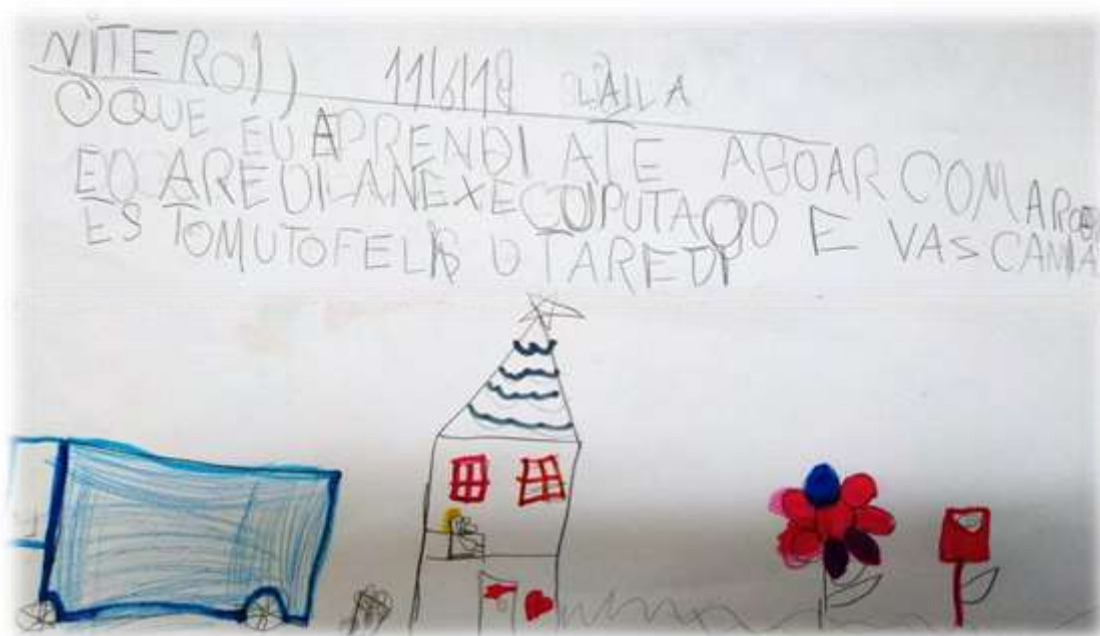 NITEROI) 11/6/18 LAILA
OQUE EU APRENDI ATE AGOAR COM AROER
EO AREDILANEXE COIPUTAÇOO E VAS CAMA
ES TOMUTOFELIS OTAREDI